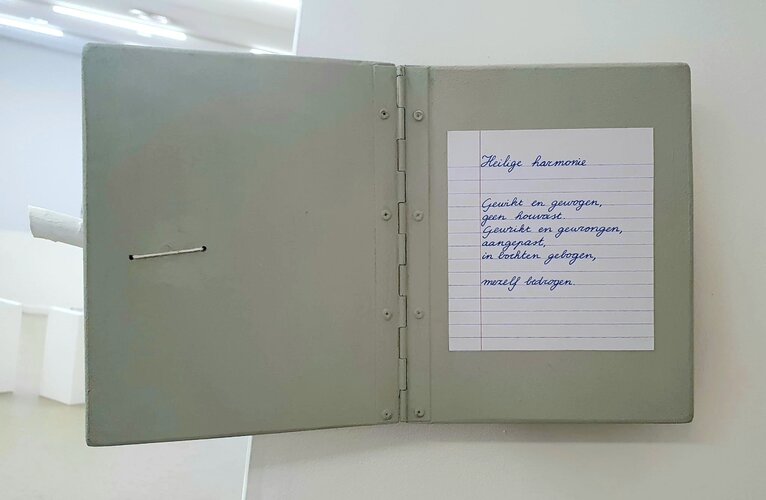 Heilige harmonie
Gewikt en gewogen,
geen houvast.
Gewrikt en gewrongen,
aangepast,
in bochten gebogen,
mezelf bedrogen.